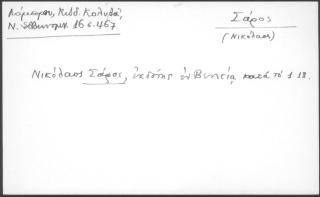 Λάμπρου, Κώδ. Κολυβᾶ,
Ν. Ἑλληνομν. 16 σ. 467
Σάρος
(Νικόλαος)
Νικόλαος Σάρος, ἐκδότης ἐν Βενετίᾳ κατὰ τὸ 1 18.